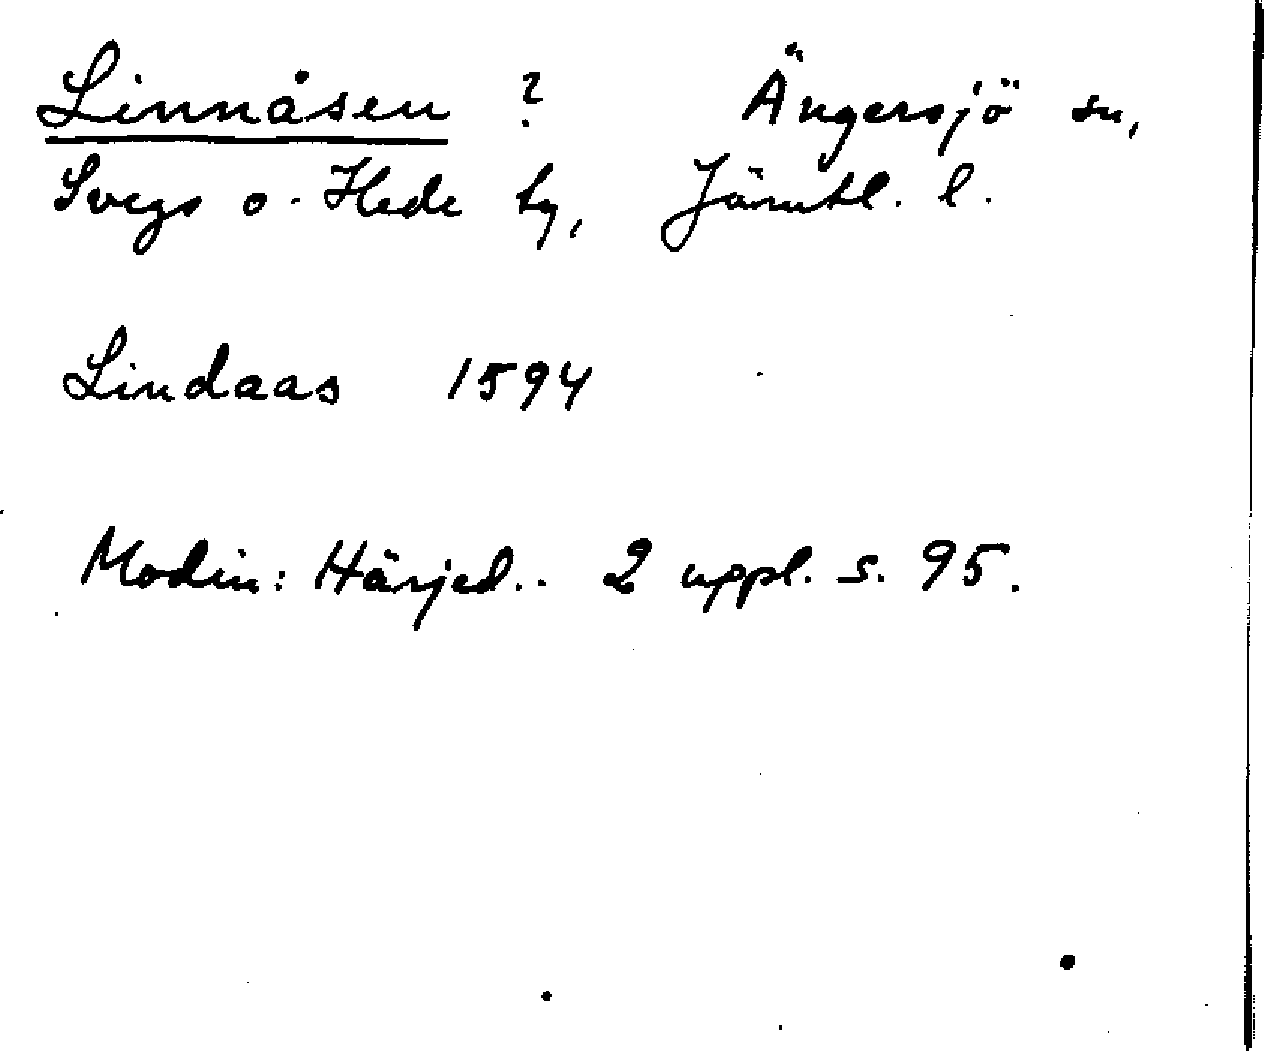 Linnåsen ? Ängersjö sn,
Svegs o. Hede ty, Jämtl. l.
Lindaas 1594
Modin: Härjed.. 2 uppl. s. 95.